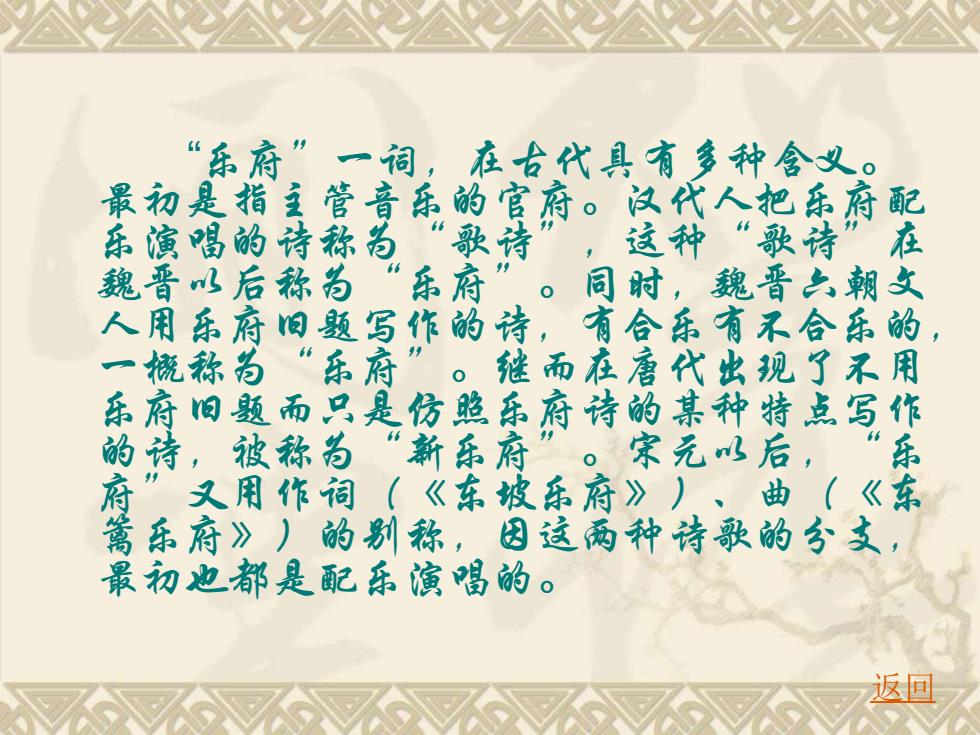 “乐府”一词，在古代具有多种含义。
最初是指主管音乐的官府。汉代人把乐府配
乐演唱的诗称为“歌诗”，这种“歌诗”在
魏晋以后称为“乐府”。同时，魏晋六朝文
人用乐府旧题写作的诗，有合乐有不合乐的，
一概称为“乐府”。继而在唐代出现了不用
乐府旧题而只是仿照乐府诗的某种特点写作
的诗，被称为“新乐府”。宋元以后，“乐
府”又用作词（《东坡乐府》）、曲（《东
篱乐府》）的别称，因这两种诗歌的分支，
最初也都是配乐演唱的。
返回